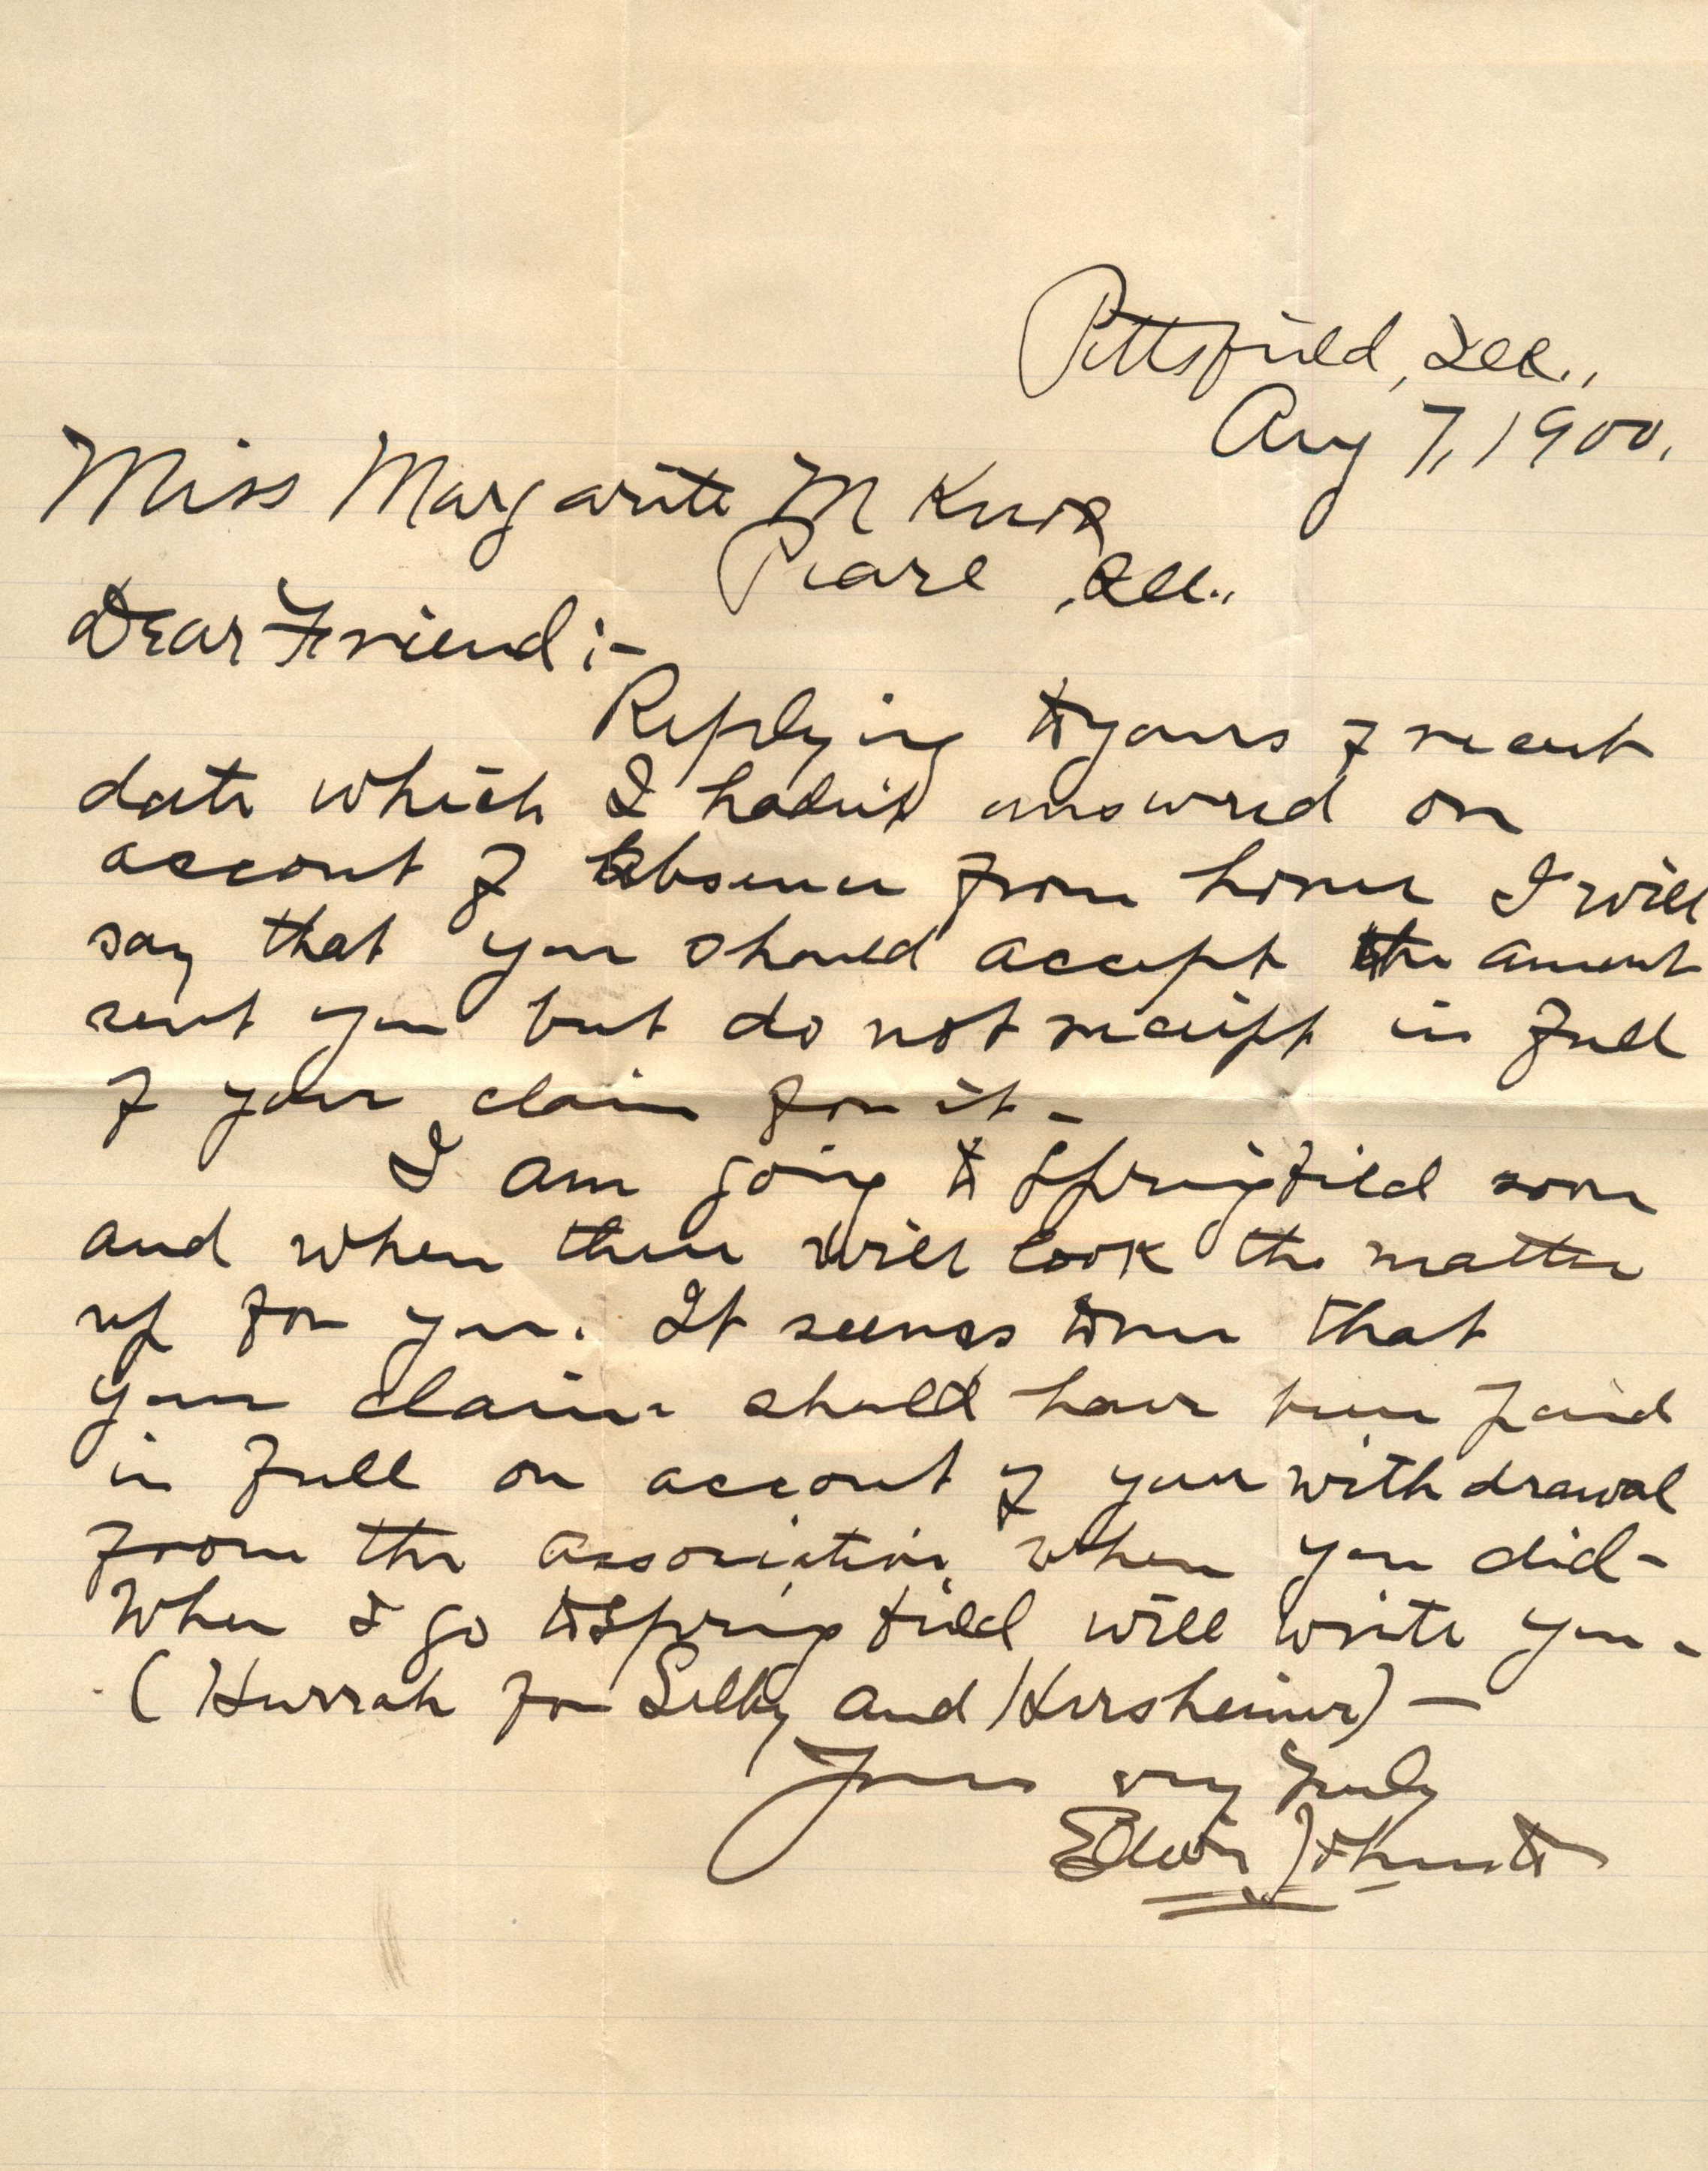 Pittsfield, Ill.,
Aug 7, 1900.
Miss Margarite M Knox
Pearl, Ill.,
Dear Friend:-
Replying to yours of recent
date which I hadn't answered on
account of absence from home I will
say that you should accept the amount
sent you but do not receipt in full
of your claim for it-
I am going to Springfield soon
and when there will look the matter
up for you. It seems to me that
your claim should have been paid
in full on account of your withdrawal
from the association when you did-
When I go to Springfield will write you-
(Hurrah for Selby and Hersheimer)-
Yours very truly
Edwin Johnston